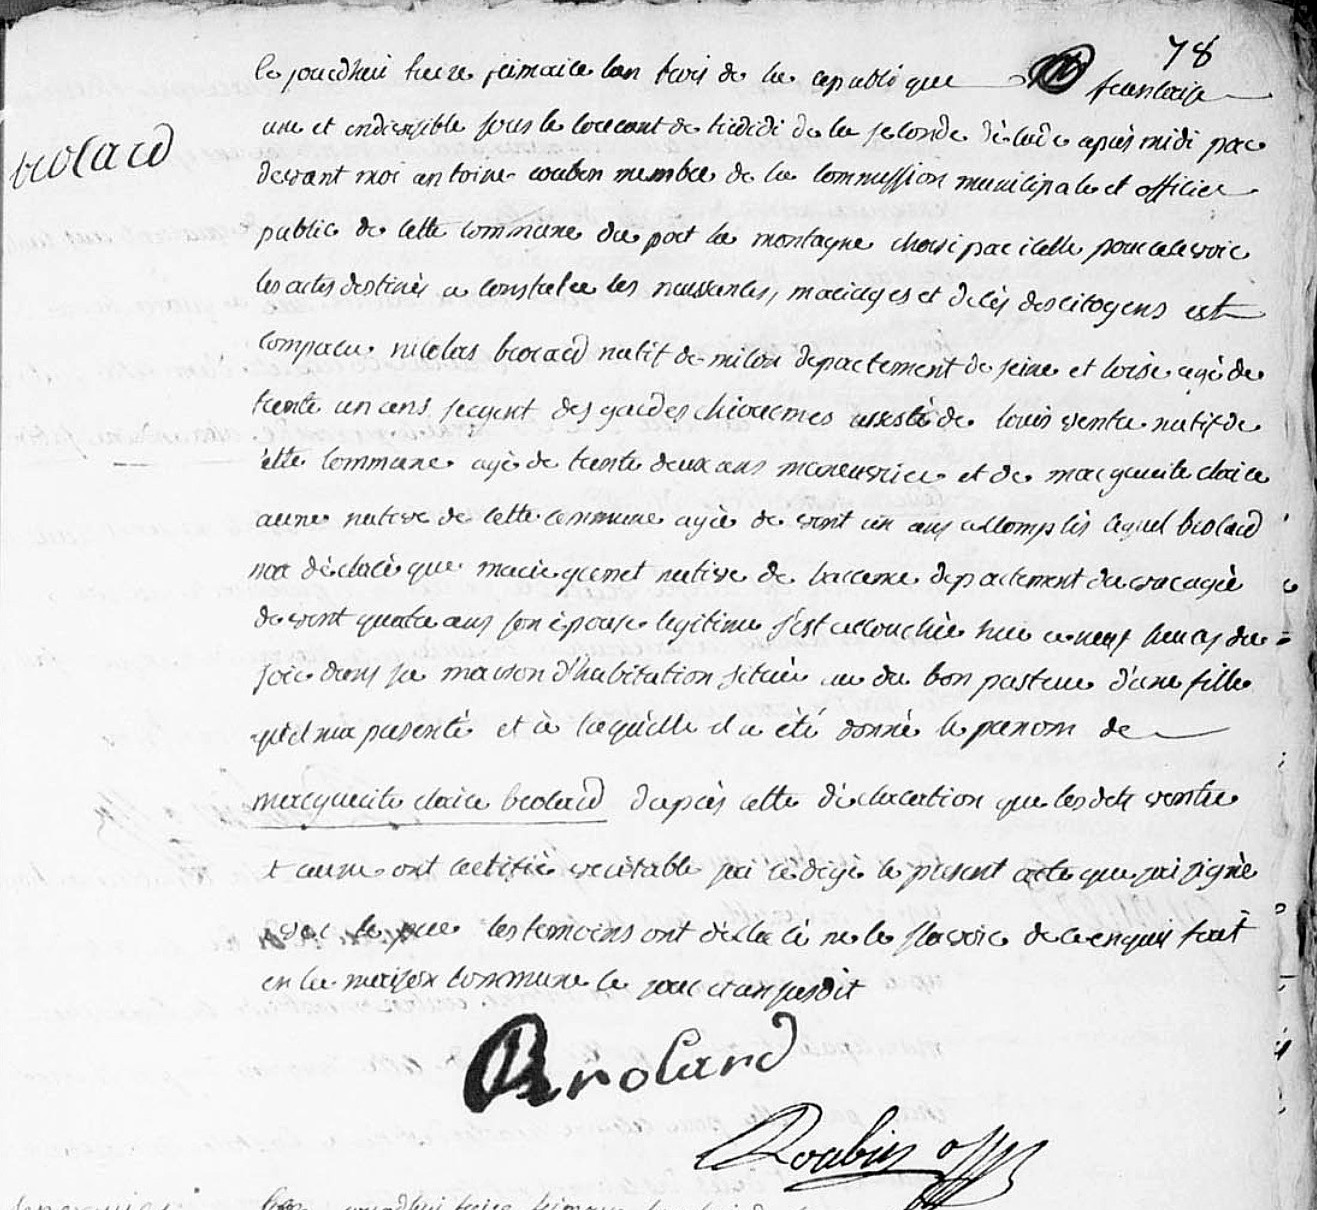 78
le jourdhui treize frimaire lan trois de la republique francaise
brolard
une et indivisible sous le courant de trididi de la seconde décade apiès midi par
devant moi antoine roubin membre de la commission municipale et officier
public de cette commune du port la montagne choisi par icelle pour recevoir
les actes destinés a constater les naissances, mariages et décés des citoyens est
comparu nicolas brolard natif de milon departement de seine et loise agé de
trente un ans sergent des gardes chiourmes assisté de louis ventre natif de
cette commune agé de trente deux ans manouvrier et de marguerite claire
aune native de cette commune agée de vint un ans accomplis lequel brolard
ma déclaré que marie granet native de bareme departement du var agée
de vint quatre ans son épouse legitime s'est accouchée hier a neuf heures du
soir dans sa maison d'habitation située rue du bon pasteur d'une fille
quil ma presenté et à laquelle il a été donné le prenom de
marguerite claire brolard dapiès cette déclaration que lesdits ventre
et aune ont certifié veritable jai redigé le present acte que jai signé
avec le pere les temoins ont déclaré ne le scavoir de ce enquis fait
en la maison commune le jour et an susdit
Brolard
Roubin off